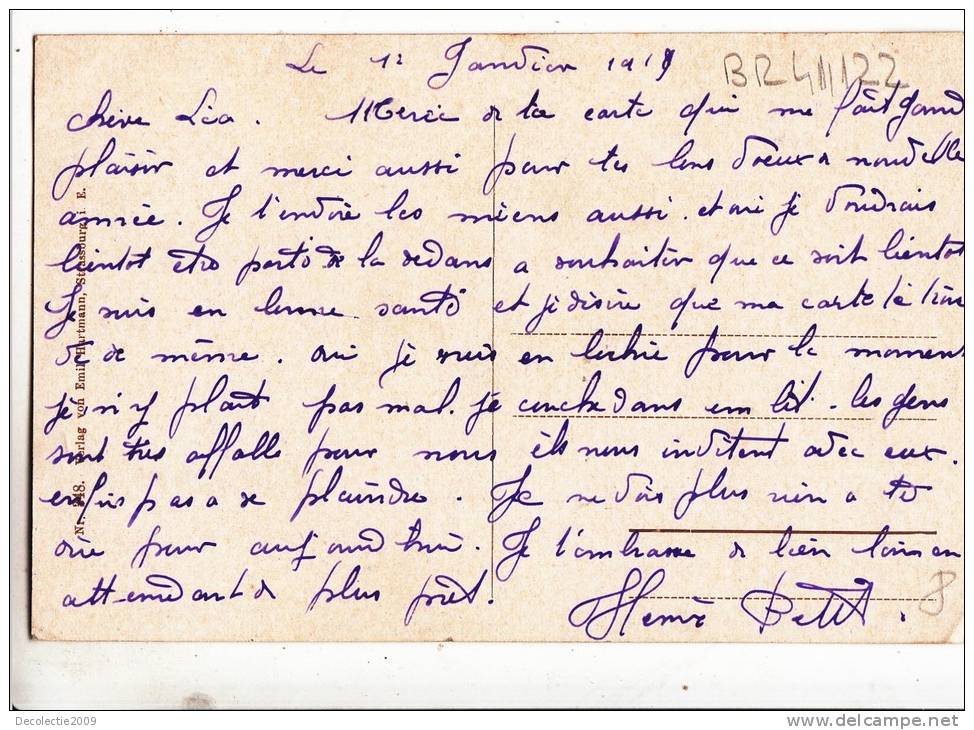 Le 12 Janvier 1919
BR411122
Chère Léa. Merci de ta carte qui me fait grand
plaisir et merci aussi pour tes bons voeux nouvelle
année. Je t'envoie les miens aussi. et oui je voudrais
bientot être parti de la dedans a souhaiter que ce soit bientot
Je suis en bonne santé et je désire que ma carte te trouve
de même. oui je suis en pour le moment
je n'y plait pas mal. je couche dans em lit. les gens
sont très affable pour nous ils nous invitent avec eux.
enfin pas a se plaindre. Je ne vois plus rien a te
dire pour aujourd'hui. Je t'embrasse de bien loin en
attendant de plus prêt.
Petit.
8
Nr. 248. Verlag von Emil Hartmann, Strassburg i. E.
Decolectie2009
www.delcampe.net